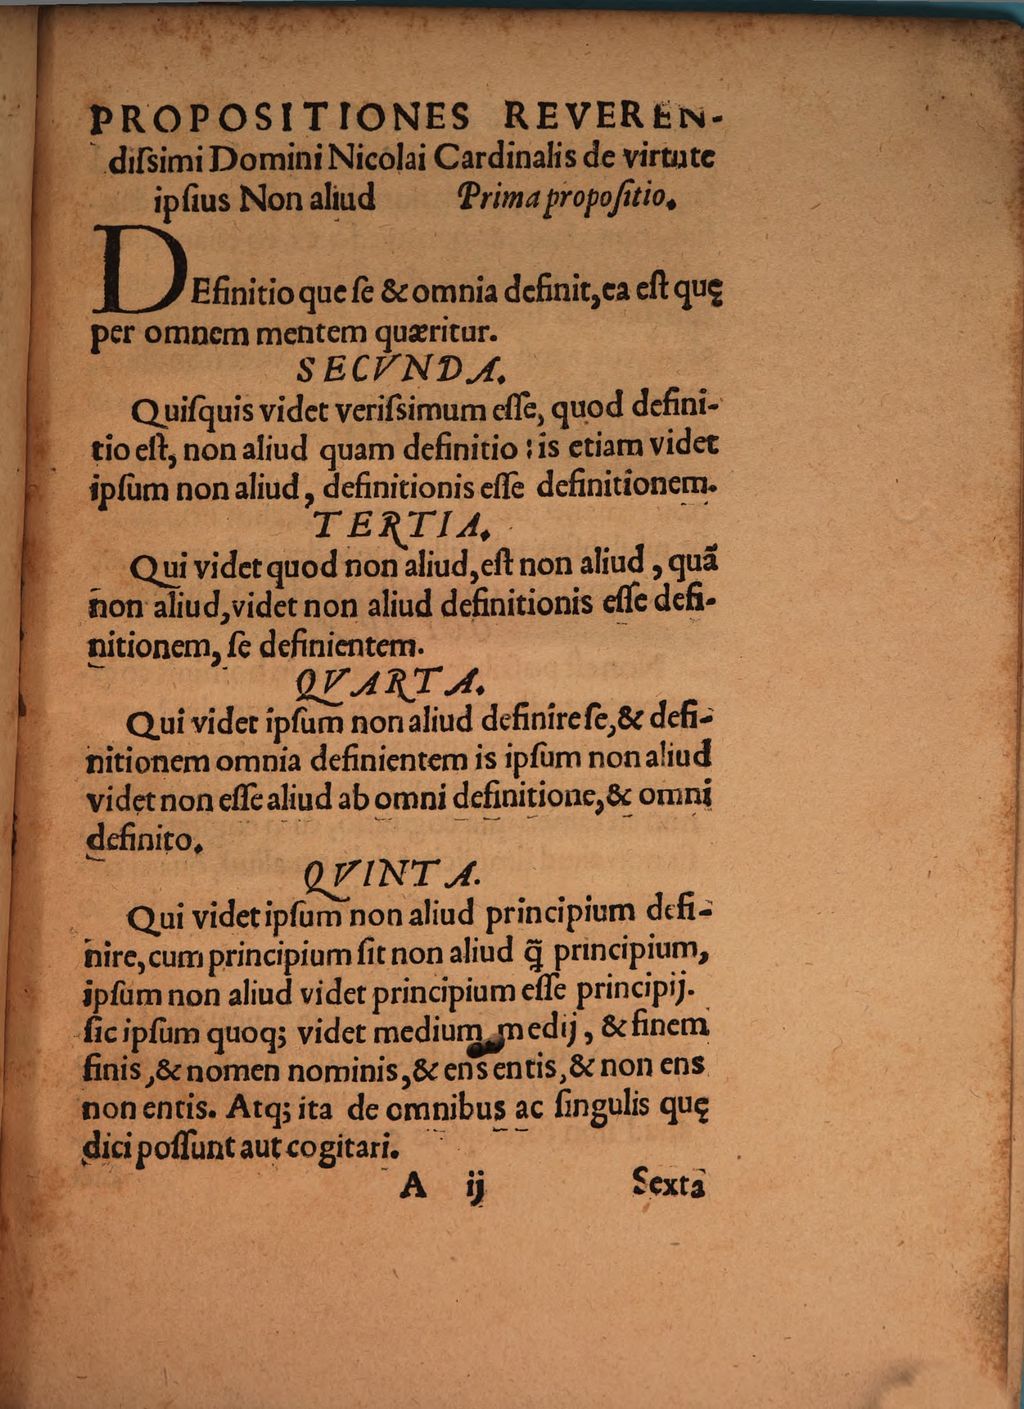 PROPOSITIONES REVEREN-
diſsimi Domini Nicolai Cardinalis de virtute
ipſius Non aliud Prima propoſitio.
DEfinitio que ſe & omnia definit, ea eſt quę
per omnem mentem quæritur.
SECVNDA.
Quiſquis videt veriſsimum eſſe, quod defini-
tio eſt, non aliud quam definitio : is etiam videt
ipſum non aliud, definitionis eſſe definitionem.
TERTIA.
Qui videt quod non aliud, eſt non aliud, quã
non aliud, videt non aliud definitionis eſſe defi-
nitionem, ſe definientem.
QVARTA.
Qui videt ipſum non aliud definire ſe, & defi-
nitionem omnia definientem is ipſum non aliud
videt non eſſe aliud ab omni definitione, & omni
definito.
QVINTA.
Qui videt ipſum non aliud principium defi-
nire, cum principium ſit non aliud q̃ principium,
ipſum non aliud videt principium eſſe principij.
ſic ipſum quoq; videt medium medij, & finem
finis, & nomen nominis, & ens entis, & non ens
non entis. Atq; ita de omnibus ac ſingulis quę
dici poſſunt aut cogitari.
A ij Sexta